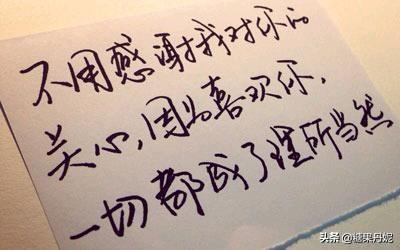 不用感谢我对你的
关心，因为喜欢你，
一切都成了理所当然
头条@糖果丹妮